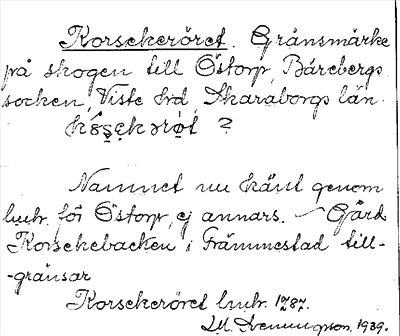 Korsekeröret. Gränsmärke
på skogen till Östorp, Bärebergs
socken, Viste hrd, Skaraborgs län.
?
Namnet nu känt genom
lmhr. för Östorp, ej annars. – Gård
Korsekebacken i Främmestad till-
-gränsar
Korsekeröret lmhr. 1787.
M. Svenungsson. 1939.